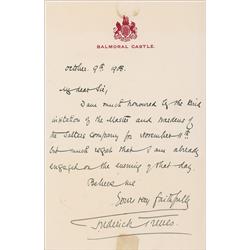 BALMORAL CASTLE.
October 9th 1908.
My dear Sir,
I am much honoured by the kind
invitation of the Master and Wardens of
the Salters Company for November 11th
but much regret that I am already
engaged on the evening of that day
Believe me
Yours very faithfully
Frederick Treves.